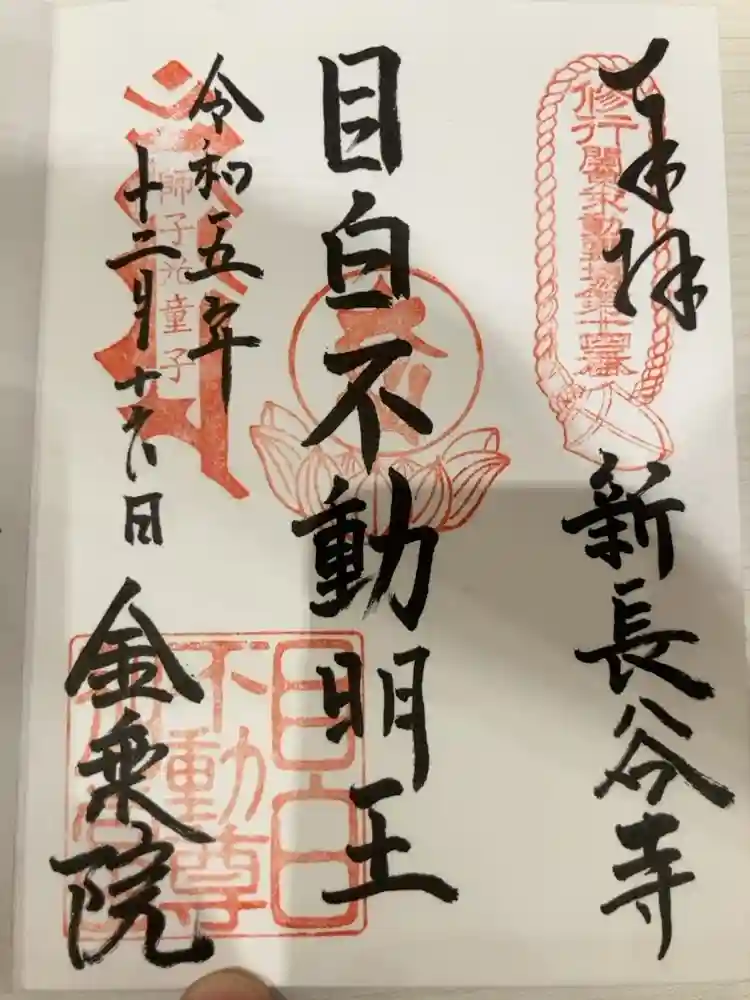 奉拝
修行
関東不動霊場第十四番
新長谷寺
目白不動明王
目白
不動尊
令和五年
十二月十六日
師子光童子
金乗院